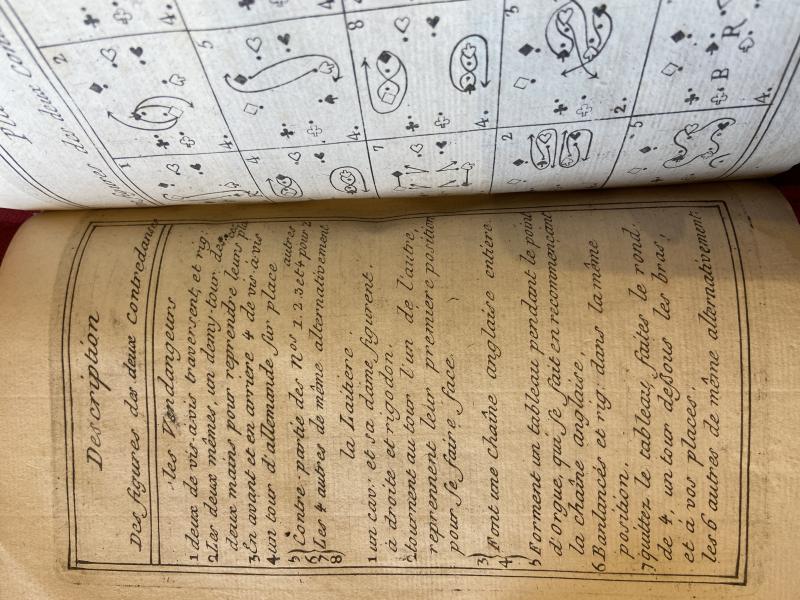 Description
Des figures des deux contredanses
les Vendangeurs
1 deux de vis-avis traversent, et rig.
2 Les deux mêmes, un demy-tour des
deux mains pour reprendre leurs pla
3 En avant et en arriere 4 de vis-avis
4 un tour d'allemande sur place
5) 6) Contre-partie des Nos 1. 2. 3 et 4 pour 2 autres
7) 8) Les 4 autres de même alternativement
la Laitiere
1 un cav. et sa dame figurent
à droite et rigodon.
2 tournent autour l'un de l'autre,
reprennent leur premiere position
pour se faire face.
3) 4) Font une chaîne anglaise entiere
5 Forment un tableau pendant le point
d'orgue, qui se fait en recommencant
la chaîne anglaise,
6 Banlancés et rig. dans la même
position.
7 quittez le tableau, faites le rond
de 4, un tour dessous les bras,
et à vos places.
les 6 autres de même alternativement.
figures des deux cont
1
2
4.
4.
4
5
4.
7
8
4.
2
3
2.
5
B
R
4.